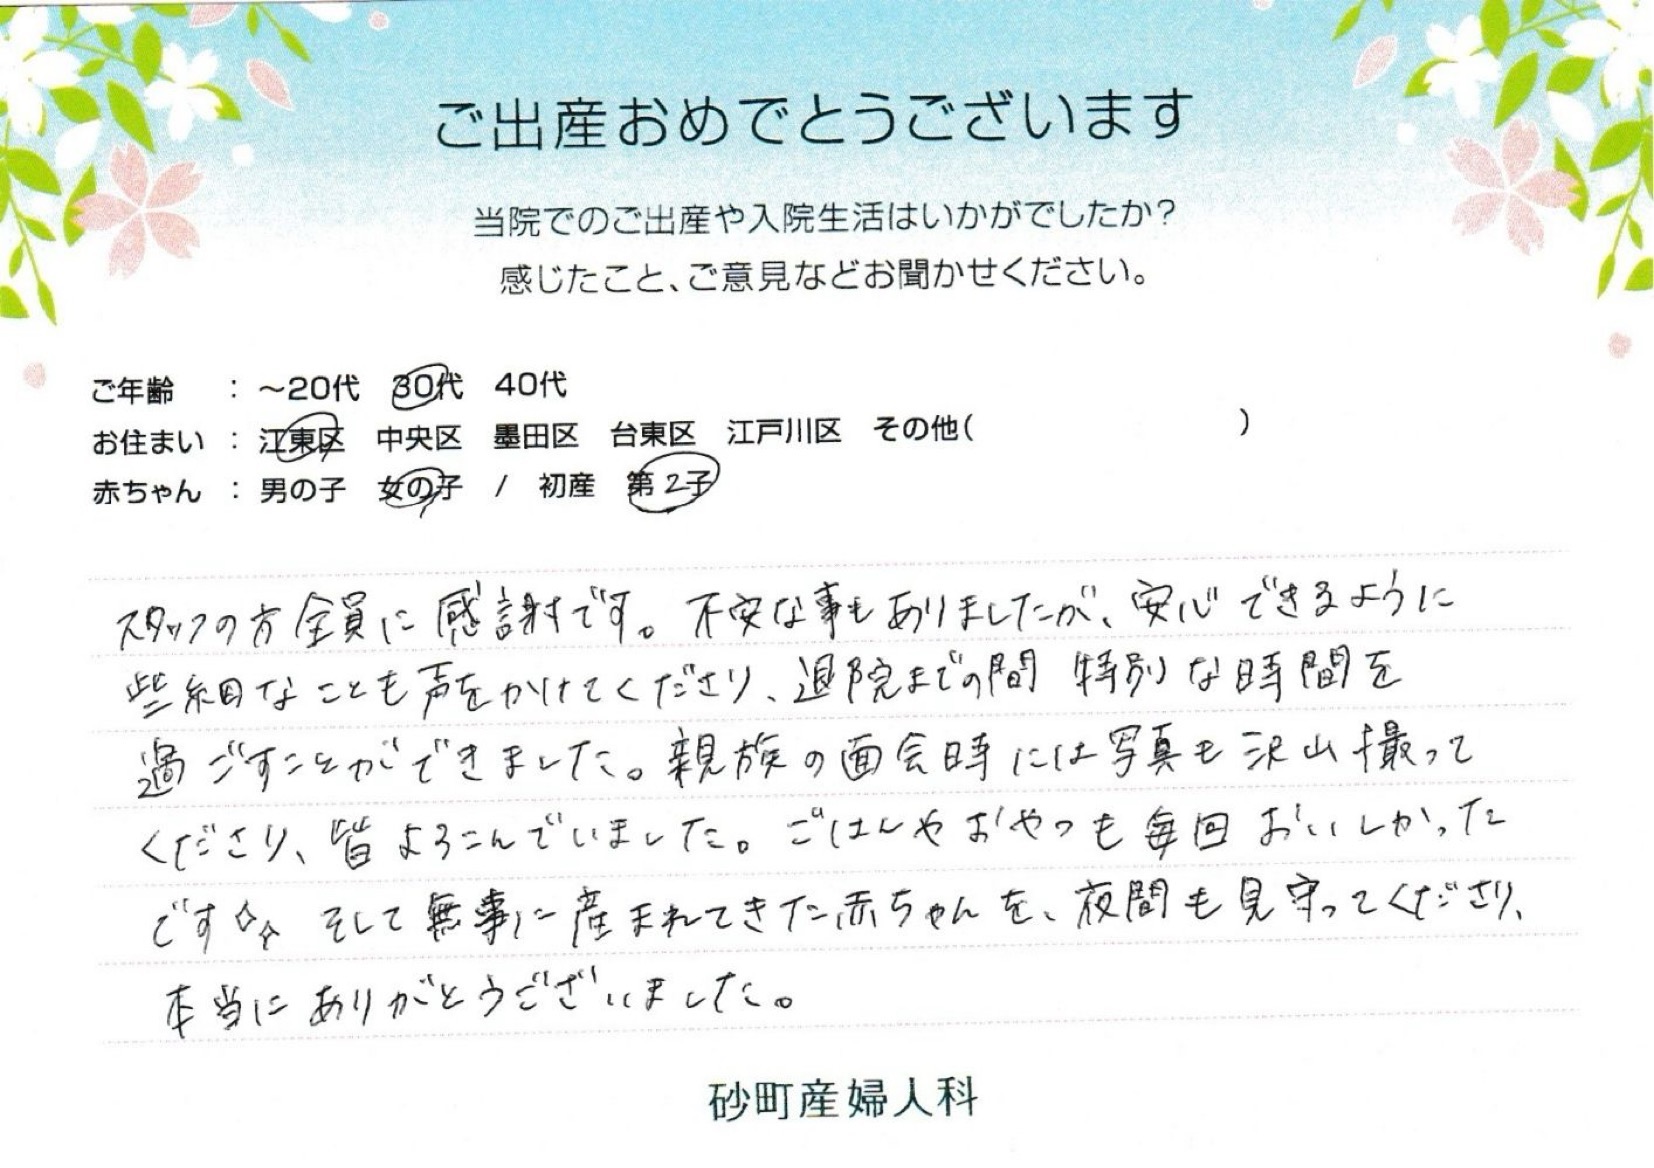 ご出産おめでとうございます
当院でのご出産や入院生活はいかがでしたか?
感じたこと、ご意見などお聞かせください。
ご年齢 : ～20代 30代 40代
お住まい : 江東区 中央区 墨田区 台東区 江戸川区 その他( )
赤ちゃん : 男の子 女の子 / 初産 第2子
スタッフの方全員に感謝です。不安な事もありましたが、安心できるように
些細なことも声をかけてくださり、退院までの間 特別な時間を
過ごすことができました。親族の面会時には写真も沢山撮って
くださり、皆よろこんでいました。ごはんやおやつも毎回おいしかった
です✧✧ そして無事に産まれてきた赤ちゃんを、夜間も見守ってくださり、
本当にありがとうございました。
砂町産婦人科